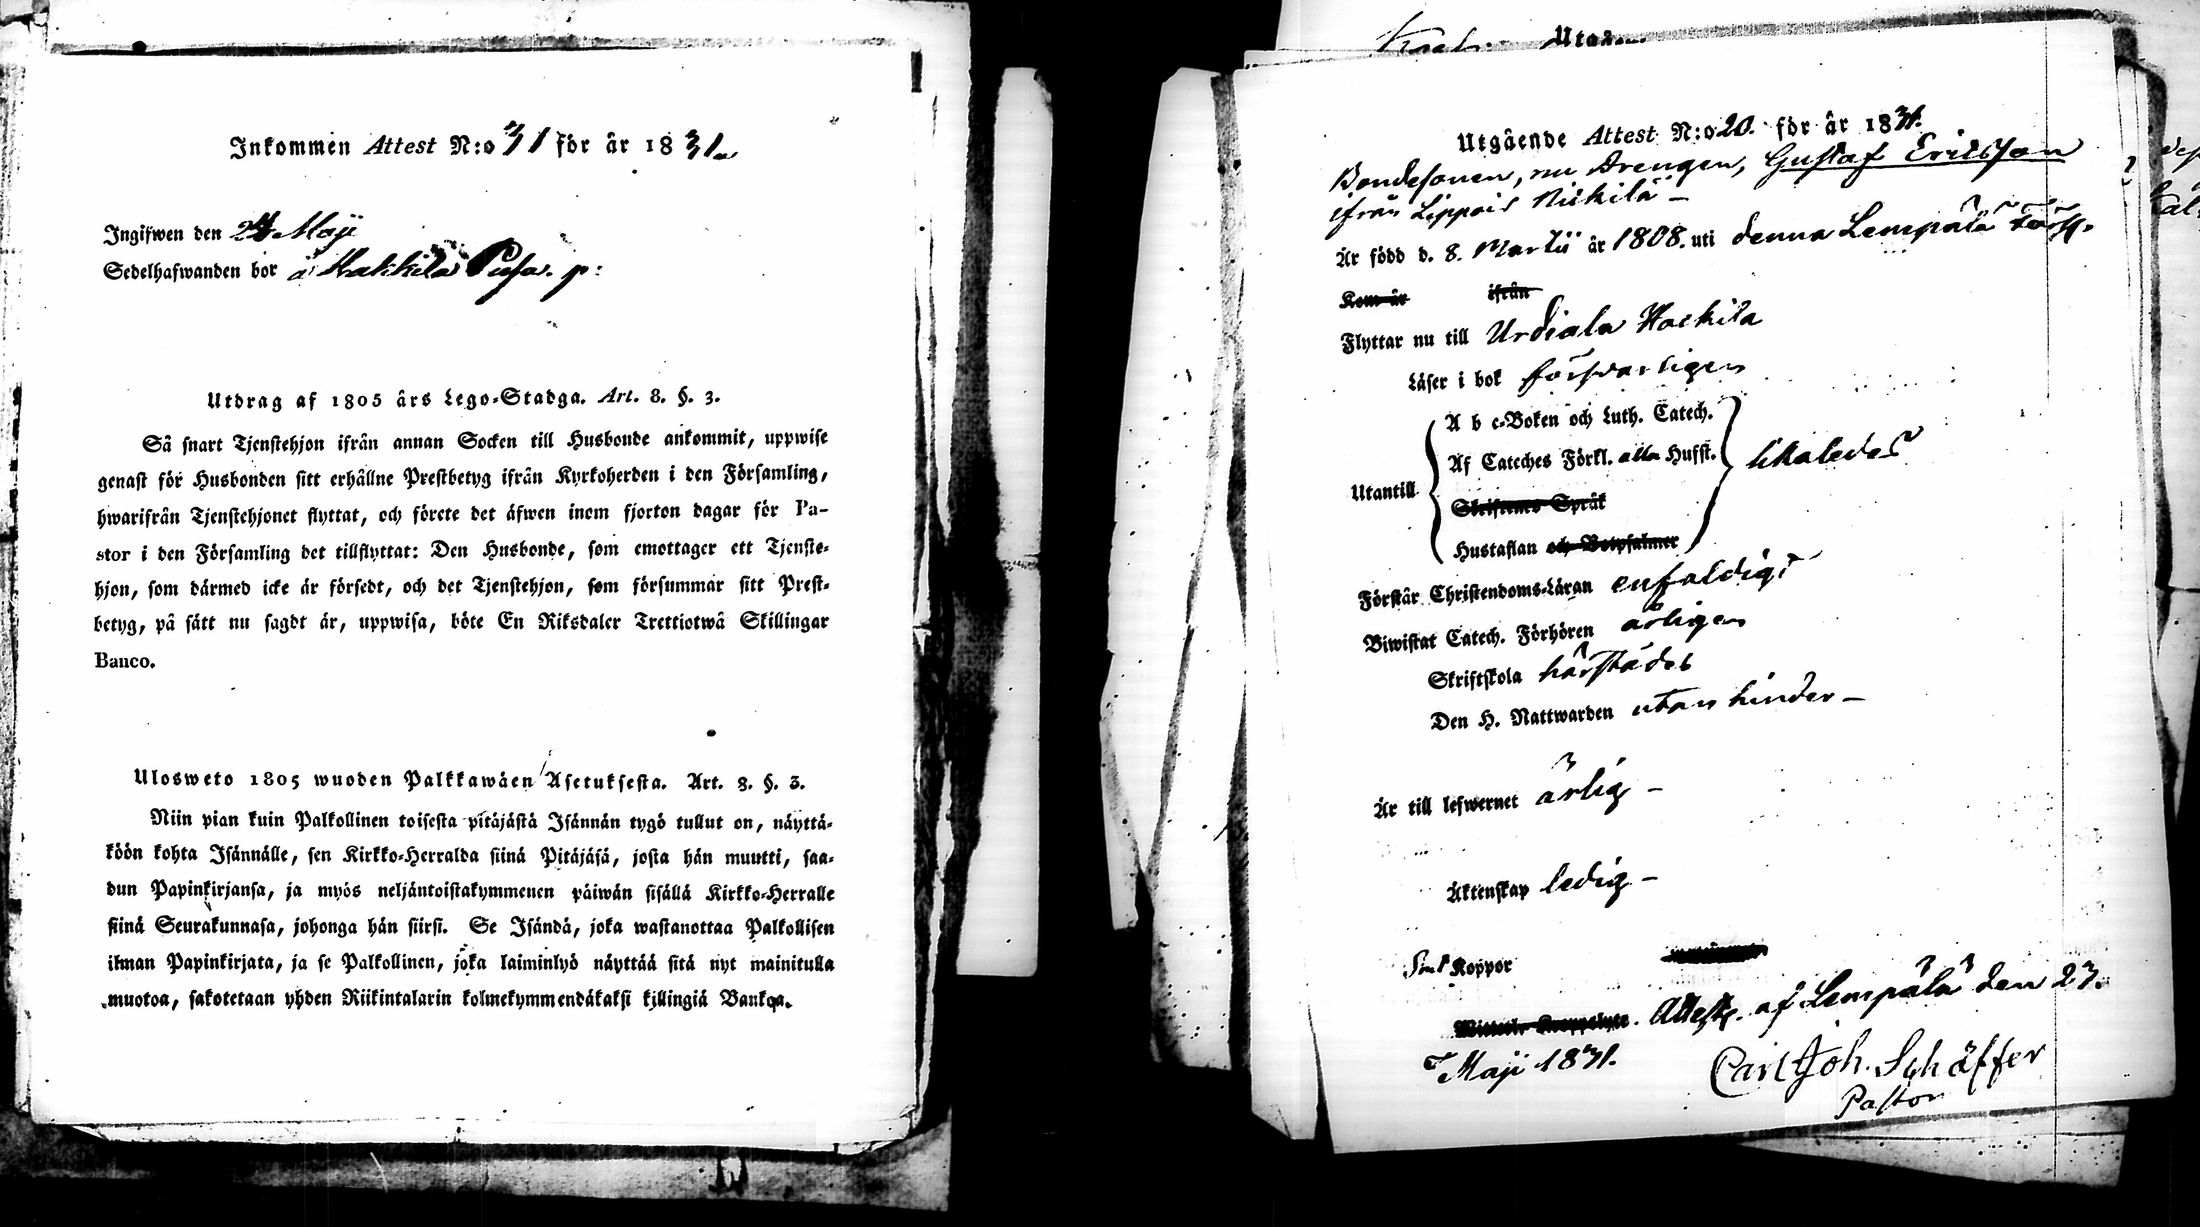 Inkommen Attest N:o 31 för år 1831.
Ingifwen den 24 Maji
Sedelhafwanden bor å
Utdrag af 1805 års Lego-Stadga. Art. 8. §. 3.
Så snart Tjenstehjon ifrån annan Socken till Husbonde ankommit, uppwise
genast för Husbonden sitt erhållne Prestbetyg ifrån Kyrkoherden i den Församling,
hwarifrån Tjenstehjonet flyttat, och förete det äfwen inom fjorton dagar för Pa-
stor i den Församling det tillflyttat: Den Husbonde, som emottager ett Tjenste-
hjon, som därmed icke är försedt, och det Tjenstehjon, som försummar sitt Prest-
betyg, på sätt nu sagdt är, uppwisa, böte En Riksdaler Trettiotwå Skillingar
Banco.
Ulosweto 1805 wuoden Palkkawäen Asetuksesta. Art. 8. §. 3.
Niin pian kuin Palkollinen toisesta pitäjästä Isännän tygö tullut on, näyttä-
köön kohta Isännälle, sen Kirkko-Herralda siinä Pitäjäsä, josta hän muutti, saa-
dun Papinkirjansa, ja myös neljäntoistakymmenen päiwän sisällä Kirkko-Herralle
siinä Seurakunnasa, johonga hän siirsi. Se Isändä, joka wastanottaa Palkollisen
ilman Papinkirjata, ja se Palkollinen, joka laiminlyö näyttää sitä nyt mainitulla
muotoa, sakotetaan yhden Riikintalarin kolmekymmendäkaksi killingiä Bankoa.
Utgående Attest N:o 20. för år 1831.
Bondesonen, nu Drengen, Gustaf Ericsson
ifrån Lippois Nickilä –
Är född d. 8. Martii år 1808. uti denna Lempälä Förs.
Kom år ifrån
Flyttar nu till Urdiala
Läser i bok försvarligen
Utantill
A b c-Boken och Luth. Catech.
Af Cateches Förkl. alla Hufst.
Skriftenes Språk
Hustaflan och Botpsalmer
likaledes
Förstår Christendoms-Läran enfaldigt
Biwistat Catech. Förhören årligen
Skriftskola härstädes
Den H. Nattwarden utan hinder –
Är till lefwernet ärlig –
Äktenskap ledig –
Koppor
Attest. af Lempälä den 23.
Maji 1831.
Carl Joh. Schäffer
Pastor